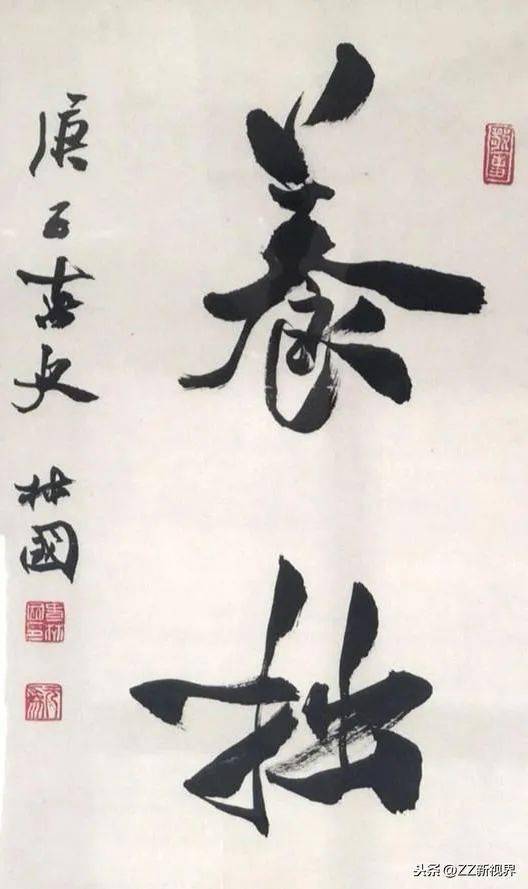 養拙
庚子春文 林國
头条@ZZ新视界